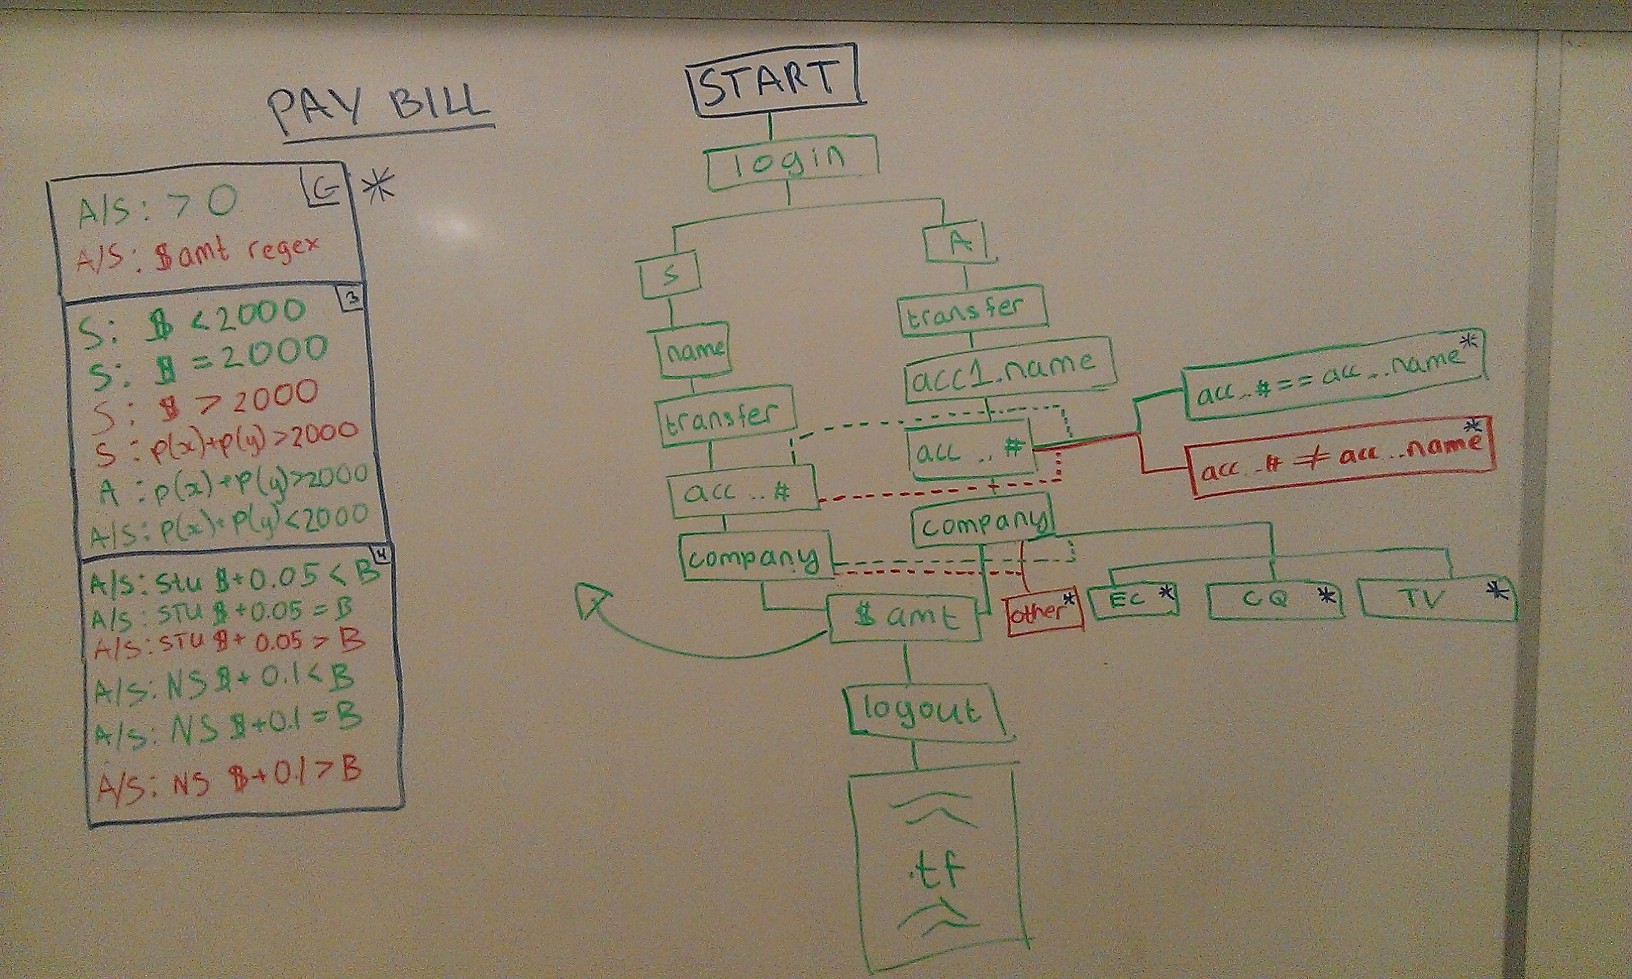 PAY BILL
G *
A/S: > 0
A/S: $amt regex
3
S: $ < 2000
S: $ = 2000
S: $ > 2000
S: p(x)+p(y)>2000
A: p(x)+p(y)>2000
A/S: p(x)+p(y)<2000
4
A/S: stu $+0.05 < B
A/S: STU $+0.05 = B
A/S: STU $+ 0.05 > B
A/S: NS $+ 0.1 < B
A/S: NS $+0.1 = B
A/S: NS $+0.1 > B
START
login
S
A
name
transfer
transfer
acc1.name
acc..#
acc..#
acc..# == acc...name*
acc..# ≠ acc...name*
company
company
$ amt
other*
EC *
CQ *
TV *
logout
.tf